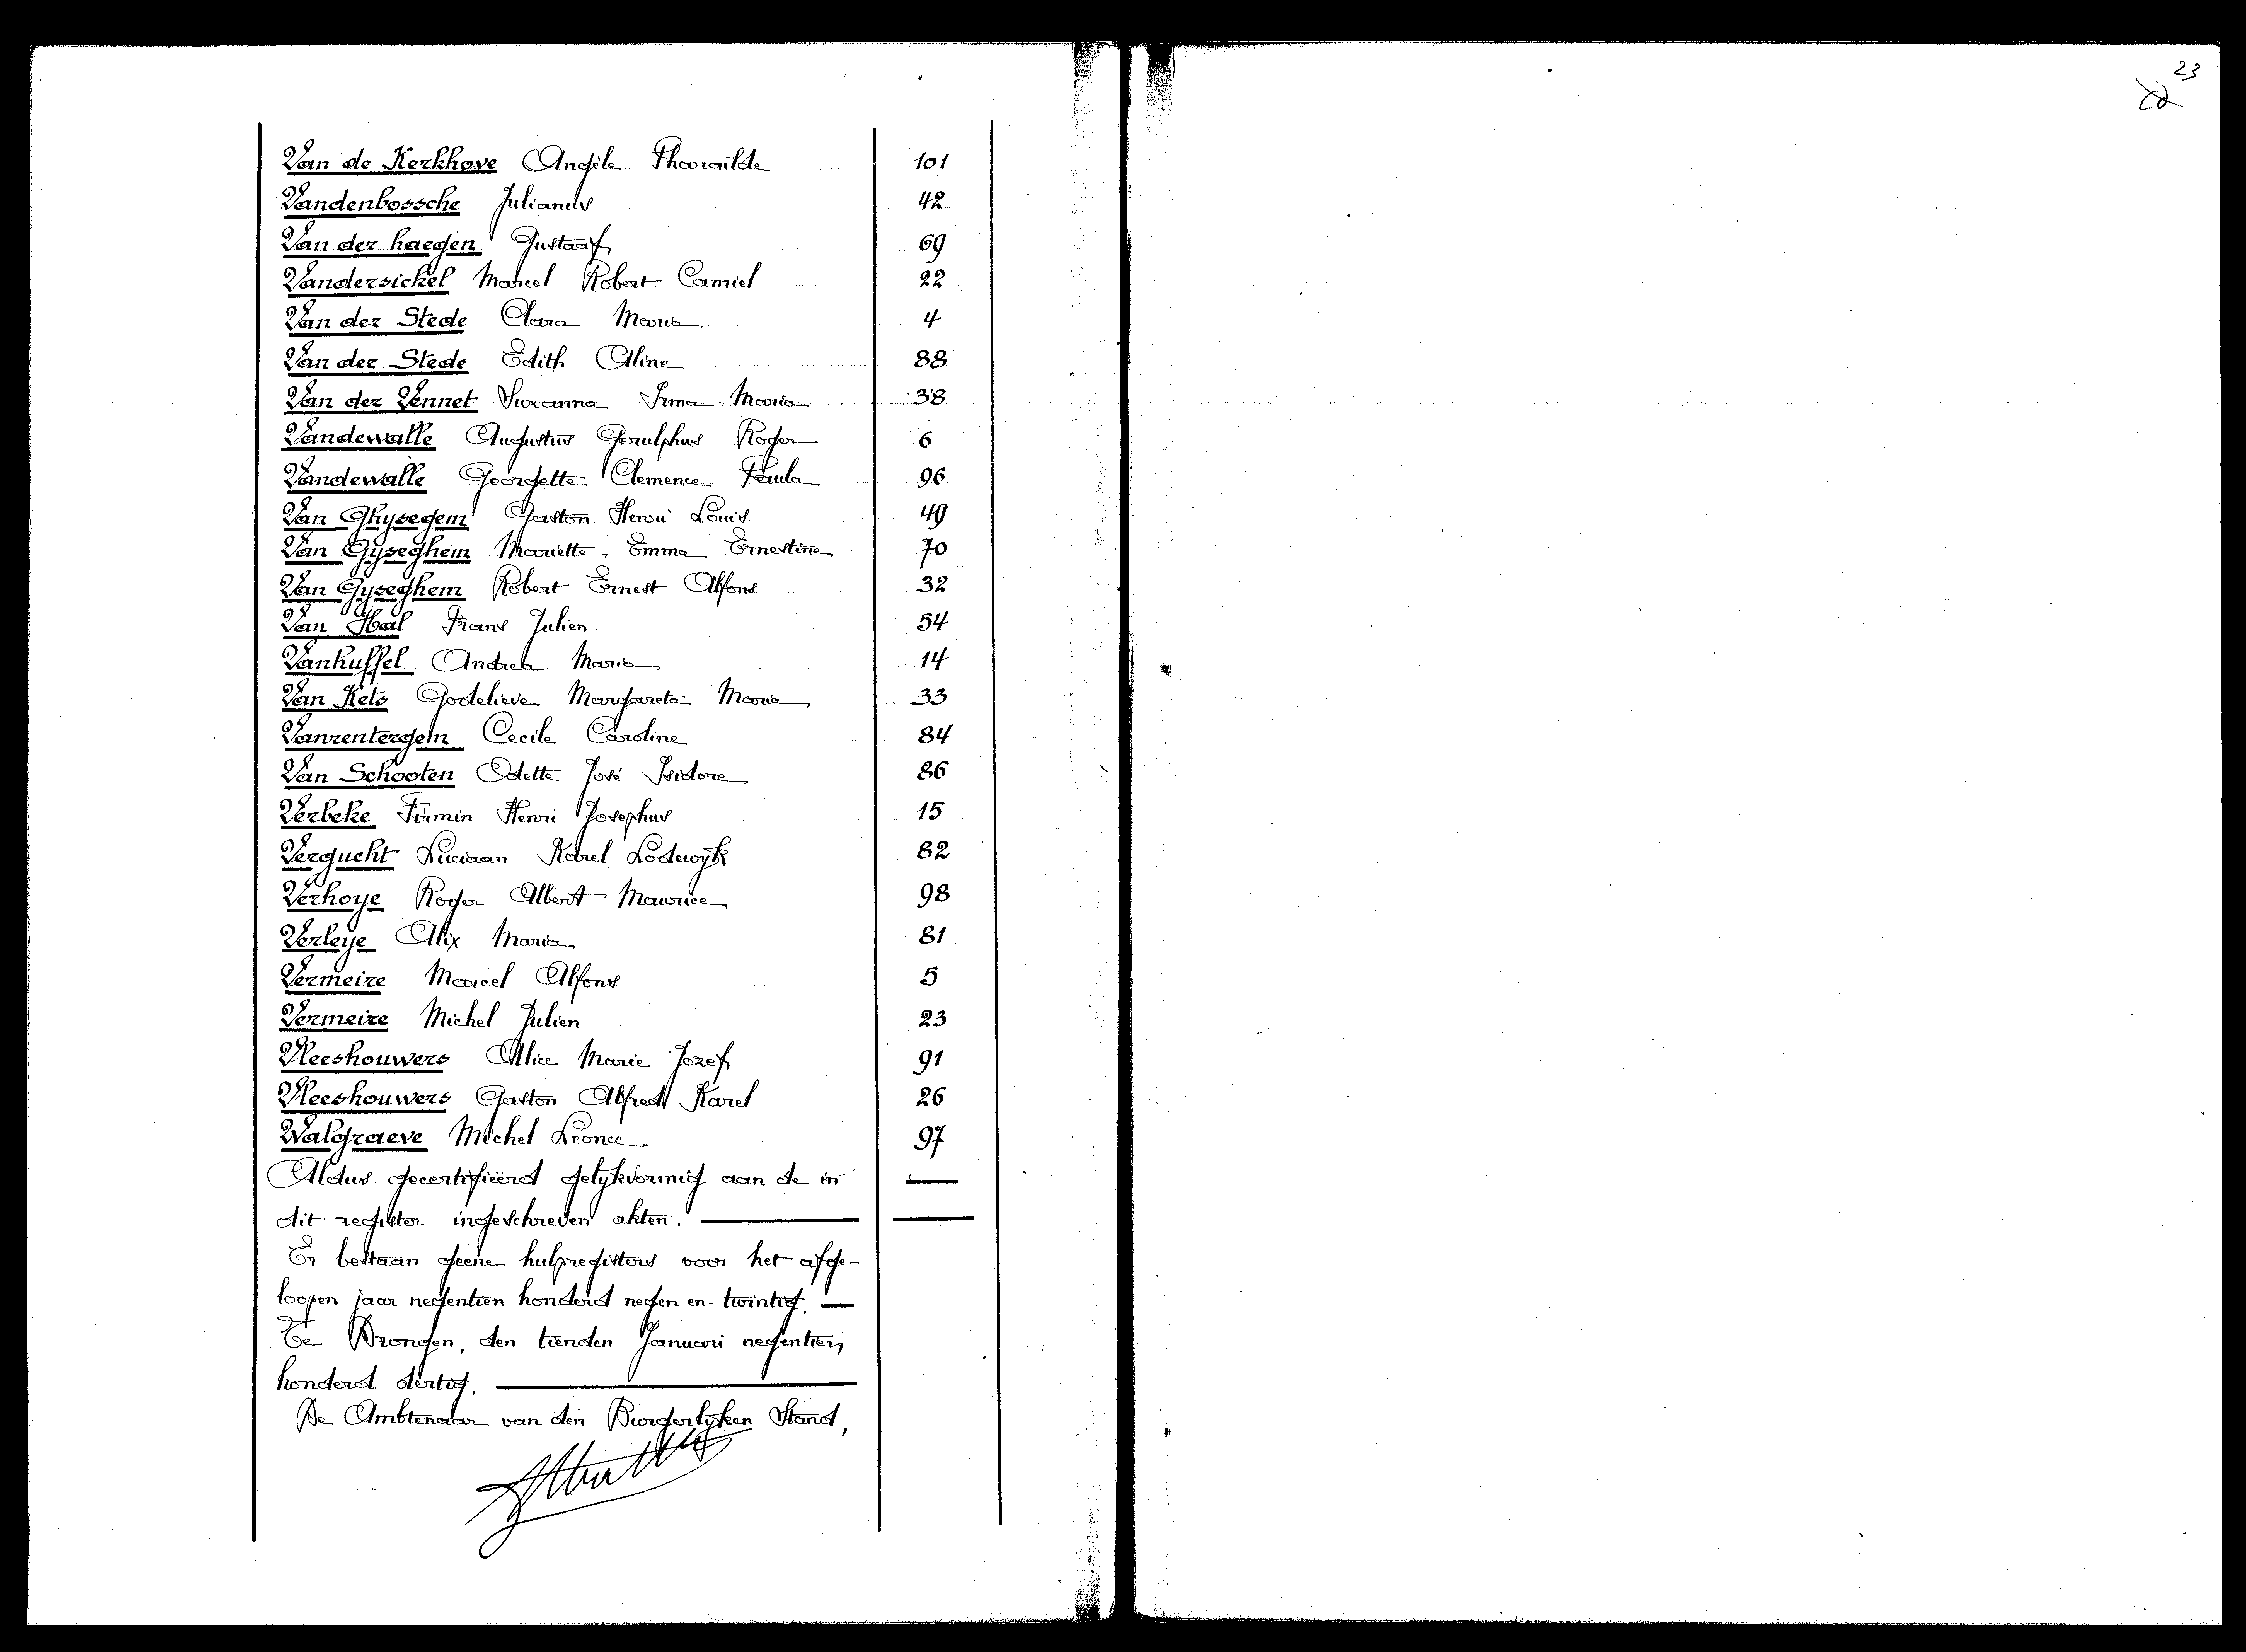 Van de Kerkhove Angèle Tharailde 101
Vandenbossche Julianus 42
Van der haegen Gustaaf 69
Vandersickel Marcel Robert Camiel 22
Van der Stede Clara Maria 4
Van der Stede Edith Aline 88
Van der Vennet Suzanna Irma Maria 38
Vandewalle Augustus Gerulphus Roger 6
Vandewalle Georgette Clemence Paula 96
Van Ghysegem Gaston Henri Louis 49
Van Gyseghem Mariette Emma Ernestine 70
Van Gyseghem Robert Ernest Alfons 32
Van Hal Frans Julien 54
Vanhuffel Andrea Maria 14
Van Kets Godelieve Margareta Maria 33
Vanrentergem Cecile Caroline 84
Van Schooten Odette José Isidore 86
Verbeke Firmin Henri Josephus 15
Vergucht Luciaan Karel Lodewyk 82
Verhoye Roger Albert Maurice 98
Verleye Alix Maria 81
Vermeire Marcel Alfons 5
Vermeire Michel Julien 23
Vleeshouwers Alice Marie Jozef 91
Vleeshouwers Gaston Alfred Karel 26
Walgraeve Michel Leonce 97
Aldus gecertifieerd gelykvormig aan de in
dit register ingeschreven akten.
Er bestaan geene hulpregisters voor het afge-
loopen jaar negentien honderd negen en-twintig.
Te Drongen, den tienden Januari negentien
honderd dertig.
De Ambtenaar van den Burgerlyken Stand,
23